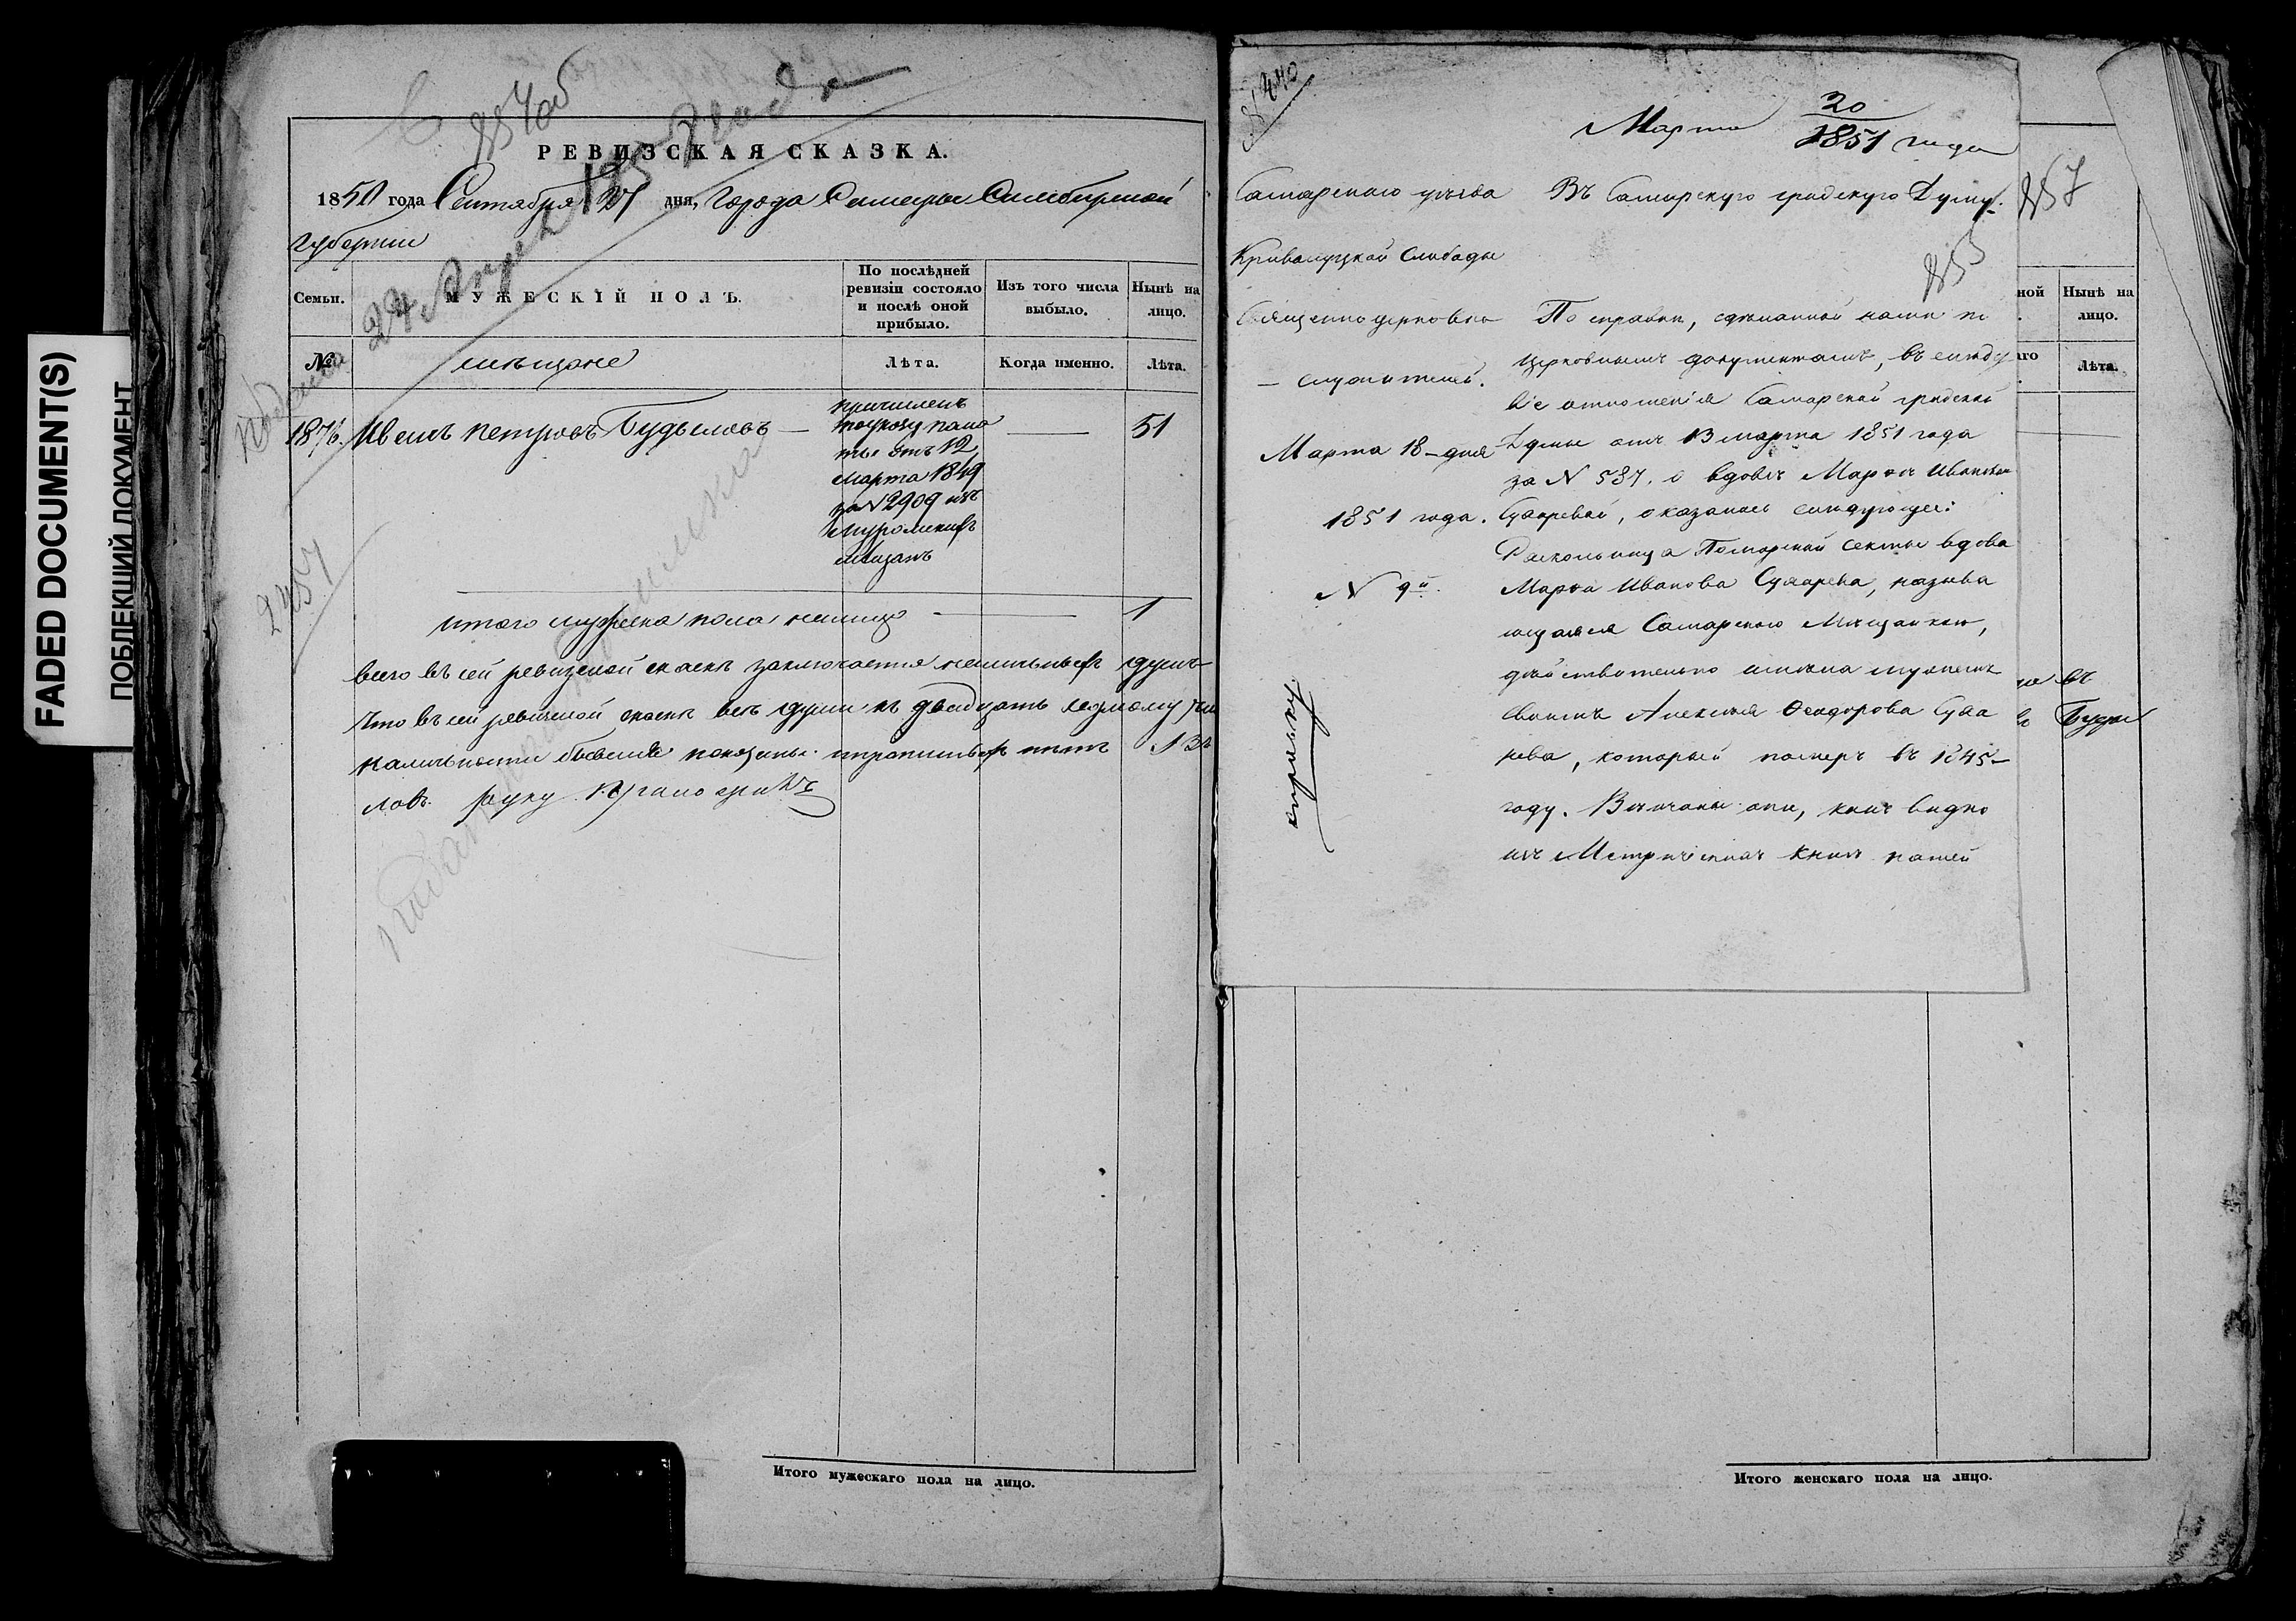 FADED DOCUMENT(S)
ПОБЛЕКШИЙ ДОКУМЕНТ
РЕВИЗСКАЯ СКАЗКА.
1850 года Сентября 27 дня, Города Самары Симбирской
губернии
Семьи.
МУЖЕСКІЙ ПОЛЪ.
По послѣдней ревизіи состояло и послѣ оной прибыло.
Изъ того числа выбыло.
Нынѣ на лицо.
№
мѣщане
Лѣта.
Когда именно.
Лѣта.
1876. Иванъ Петровъ Будыловъ —
причисленъ
по указу пала
ты отъ 12
марта 1849
за N 2909 изъ
Муромскихъ
мѣщанъ
51
итого мужска пола налицо 1
всего въ сей ревизской сказкѣ заключается наличныхъ душъ
что въ сей ревизской сказкѣ всѣ души къ двадцать седьмому
наличности бывшія показаны
ловъ руку приложилъ
2457
Итого мужескаго пола на лицо.
Марта 20 1851 года
Самарскаго уѣзда
Криволуцкой Слободы
Священноцерковно
– служителей.
Марта 18 – дня
1851 года.
N 9й.
Въ Самарскую градскую Думу.
857
По справкѣ, сдѣланной нами по
церковнымъ документамъ, въ слѣдст
віе отношенія Самарской градской
Думы отъ 13 марта 1851 года
за N 537, о вдовѣ Марѳѣ Ивановой
Сухаревой, оказалось слѣдующее:
Раскольница Поморской секты вдова
Марѳа Иванова Сухарева, называ
ющаяся Самарскою Мѣщанкою,
дѣйствительно имѣла мужемъ
своимъ Алексѣя Ѳеодорова Суха
рева, который померъ въ 1845–
году. Вѣнчаны они, какъ видно
изъ Метрическихъ книгъ нашей
къ приказу
ной
Нынѣ на лицо.
аго
Лѣта.
въ
Буды
Итого женскаго пола на лицо.